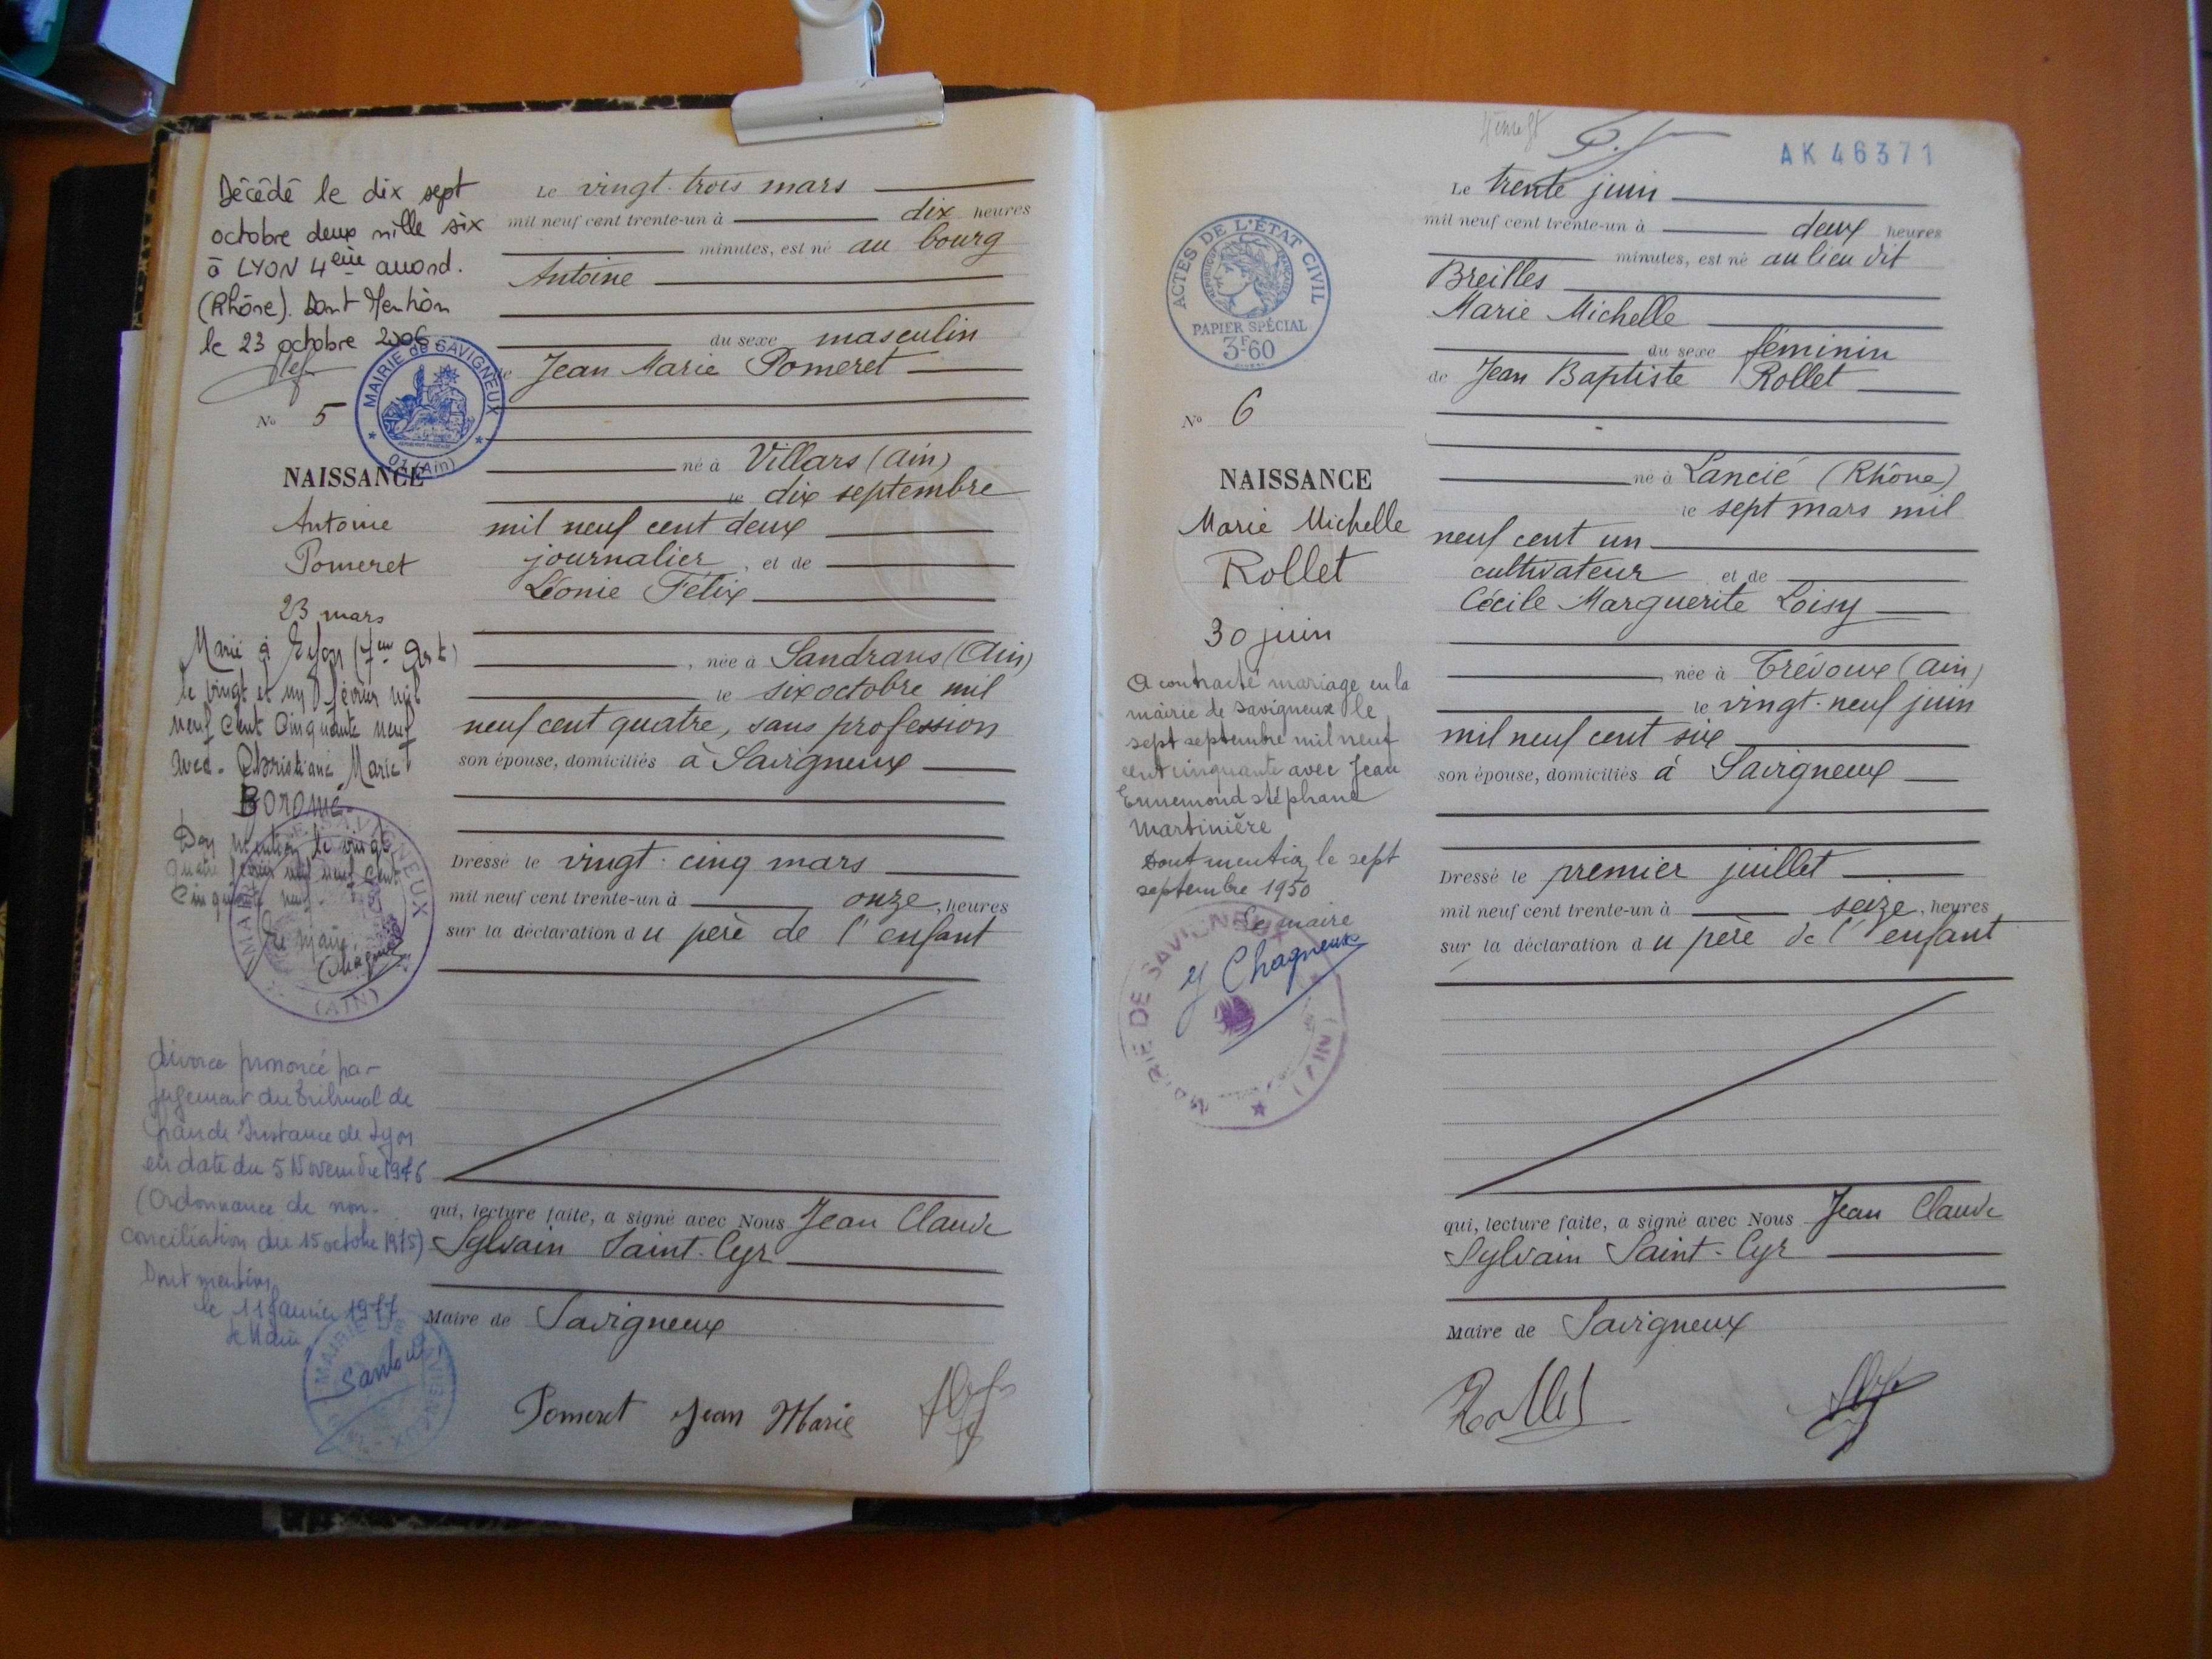 Décédé le dix sept
octobre deux mille six
à LYON 4ème arrond.
(Rhône). Dont Mention
le 23 octobre 2006.
MAIRIE de SAVIGNEUX
01 (Ain)
No 5
NAISSANCE
Antoine
Pomeret
23 mars
Marié à Lyon
le vingt et un Février mil
neuf cent cinquante neuf
avec Christiane Marie
mention le vingt
quatre février mil neuf cent
cinquante neuf
Le maire
Chagneux
MAIRIE DE SAVIGNEUX
(AIN)
divorce prononcé par
jugement du tribunal de
Grande Instance de Lyon
en date du 5 Novembre 1976
(Ordonnance de non-
conciliation du 15 octobre 1975)
Dont mention
le 11 Janvier 1977
le Maire
MAIRIE DE SAVIGNEUX
Le vingt-trois mars
mil neuf cent trente-un à dix heures
minutes, est né au bourg
Antoine
du sexe masculin
de Jean Marie Pomeret
né à Villars (Ain)
le dix septembre
mil neuf cent deux
journalier, et de
Léonie Félix
, née à Sandrans (Ain)
le six octobre mil
neuf cent quatre, sans profession
son épouse, domiciliés à Savigneux
Dressé le vingt-cinq mars
mil neuf cent trente-un à onze, heures
sur la déclaration du père de l'enfant
qui, lecture faite, a signé avec Nous Jean Claude
Sylvain Saint-Cyr
Maire de Savigneux
Pomeret Jean Marie
AK 46371
ACTES DE L'ÉTAT CIVIL
RÉPUBLIQUE FRANÇAISE
PAPIER SPÉCIAL
3F60
No 6
NAISSANCE
Marie Michelle
Rollet
30 juin
A contracté mariage en la
mairie de Savigneux le
sept septembre mil neuf
cent cinquante avec Jean
Ennemond Stéphane
Martinière
Dont mention le sept
septembre 1950
Le maire
Chagneux
MAIRIE DE SAVIGNEUX
(AIN)
Le trente juin
mil neuf cent trente-un à deux heures
minutes, est né au lieu dit
Breilles
Marie Michelle
du sexe féminin
de Jean Baptiste Rollet
né à Lancié (Rhône)
le sept mars mil
neuf cent un
cultivateur et de
Cécile Marguerite Loisy
, née à Trévoux (Ain)
le vingt-neuf juin
mil neuf cent six
son épouse, domiciliés à Savigneux
Dressé le premier juillet
mil neuf cent trente-un à seize, heures
sur la déclaration du père de l'enfant
qui, lecture faite, a signé avec Nous Jean Claude
Sylvain Saint-Cyr
Maire de Savigneux
Rollet